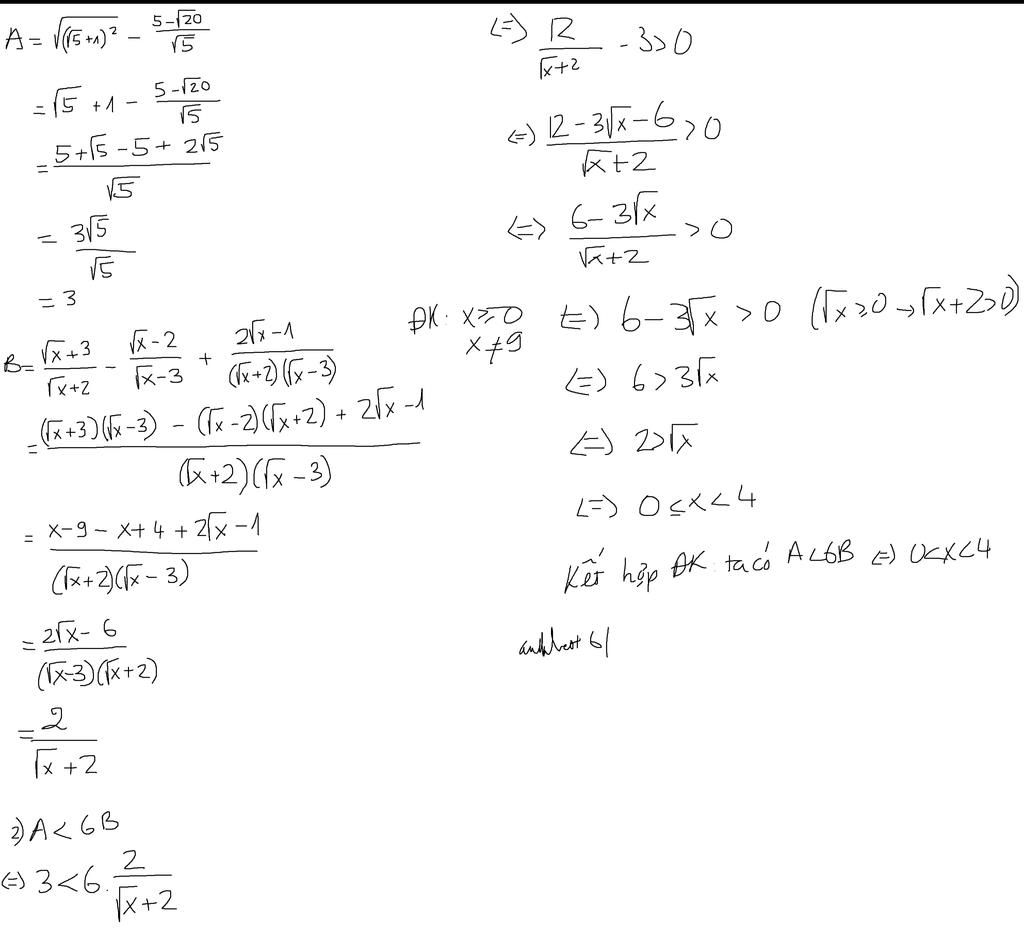 A = √((√5+1)²) − (5−√20)/√5
= √5 + 1 − (5−√20)/√5
= (5+√5 − 5 + 2√5)/√5
= 3√5/√5
= 3
B = (√x+3)/(√x+2) − (√x−2)/(√x−3) + (2√x−1)/((√x+2)(√x−3))
ĐK: x ≥ 0
x ≠ 9
= ((√x+3)(√x−3) − (√x−2)(√x+2) + 2√x −1)/((√x+2)(√x−3))
= (x−9 − x+4 + 2√x −1)/((√x+2)(√x−3))
= (2√x − 6)/((√x−3)(√x+2))
= 2/(√x+2)
2) A < 6B
(=) 3 < 6.2/(√x+2)
(=) 12/(√x+2) − 3 > 0
(=) (12 − 3√x − 6)/(√x+2) > 0
(=) (6 − 3√x)/(√x+2) > 0
(=) 6 − 3√x > 0 (√x ≥ 0 → √x+2 > 0)
(=) 6 > 3√x
(=) 2 > √x
(=) 0 ≤ x < 4
Kết hợp ĐK ta có A < 6B (=) 0 < x < 4